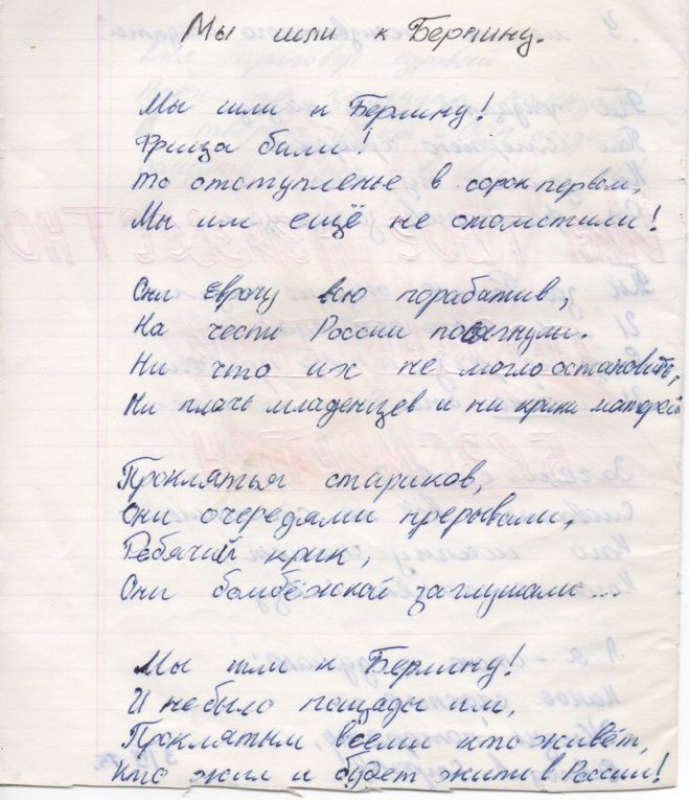 Мы шли к Берлину.
Мы шли к Берлину!
Фрица били!
То отступленье в сорок первом,
Мы им ещё не отомстили!
Они Европу всю порабатив,
На честь России посягнули.
Ни что их не могло остановить,
Ни плачь младенцев и ни крики матерей
Проклятья стариков,
Они очередями прерывали,
Ребячий крик,
Они бомбёжкой заглушали...
Мы шли к Берлину!
И небыло пощады им,
Проклятым всеми кто живёт,
Кто жил и будет жить в России!